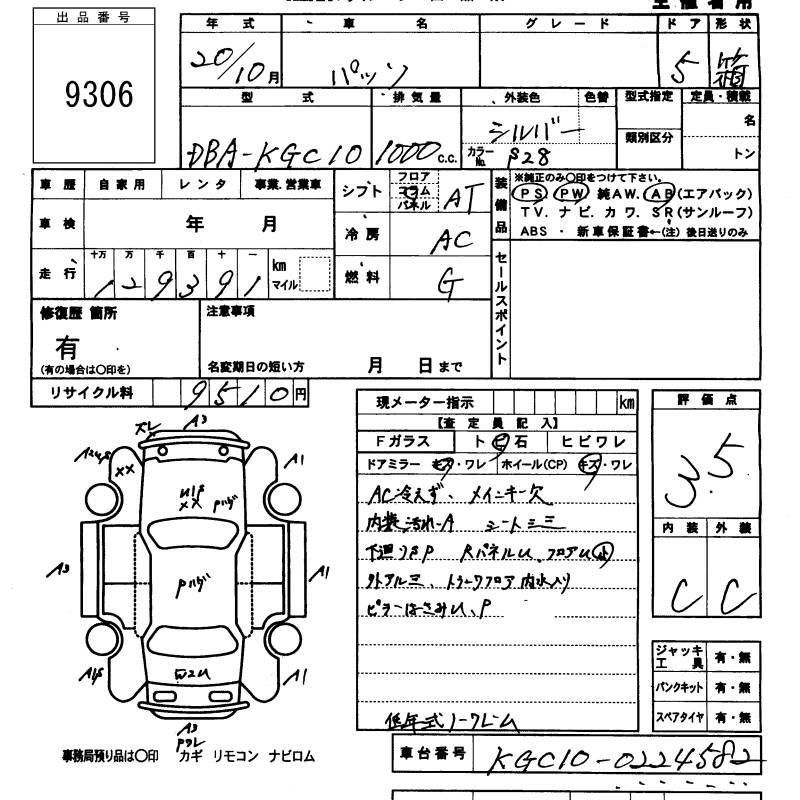 出品番号
9306
年式 車名 グレード ドア 形状
20/10月 パッソ 5 箱
型式 排気量 外装色 色替 型式指定 定員・積載
DBA-KGC10 1000c.c. シルバー カラーNo. S28 類別区分 名 トン
車歴 自家用 レンタ 事業.営業車
車検 年 月
走行 十万 万 千 百 十 一 km マイル
129391
シフト フロア コラム パネル AT
冷房 AC
燃料 G
装備品
※純正のみ〇印をつけて下さい。
PS PW 純AW. AB(エアバック)
TV. ナビ. カワ. SR(サンルーフ)
ABS ・ 新車保証書←(注) 後日送りのみ
セールスポイント
修復歴 箇所
有
(有の場合は〇印を)
注意事項
名変期日の短い方 月 日まで
リサイクル料 9510円
現メーター指示 km
【査定員記入】
Fガラス トビ石 ヒビワレ
ドアミラー キズ・ワレ ホイール(CP) キズ・ワレ
AC冷えず、メインキー欠
内装汚れ-A シートミミ
下廻りSP RパネルU、フロアU小
外アルミ、トランクフロア内水入り
ピラーはさみU、P
低年式ノークレーム
評価点
3.5
内装 外装
C C
ジャッキ工具 有・無
パンクキット 有・無
スペアタイヤ 有・無
A3
A1
U1S
XX
Pハゲ
XX
A3
Pハゲ
A1
A1S
W2U
A1
A3
事務局預り品は〇印 カギ リモコン ナビロム
車台番号 KGC10-0224582